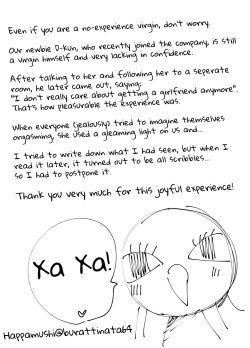 Even if you are a no-experience virgin, don't worry.
Our newbie D-kun, who recently joined the company, is still
a virgin himself and very lacking in confidence.
After talking to her and following her to a seperate
room, he later came out, saying:
"I don't really care about getting a girlfriend anymore".
That's how pleasurable the experience was.
When everyone (jealously) tried to imagine themselves
orgasming, she used a gleaming light on us and...
I tried to write down what I had seen, but when I
read it later, it turned out to be all scribbles...
so I had to postpone it.
Thank you very much for this joyful experience!
Xa Xa!
Happamushi@burattinata64